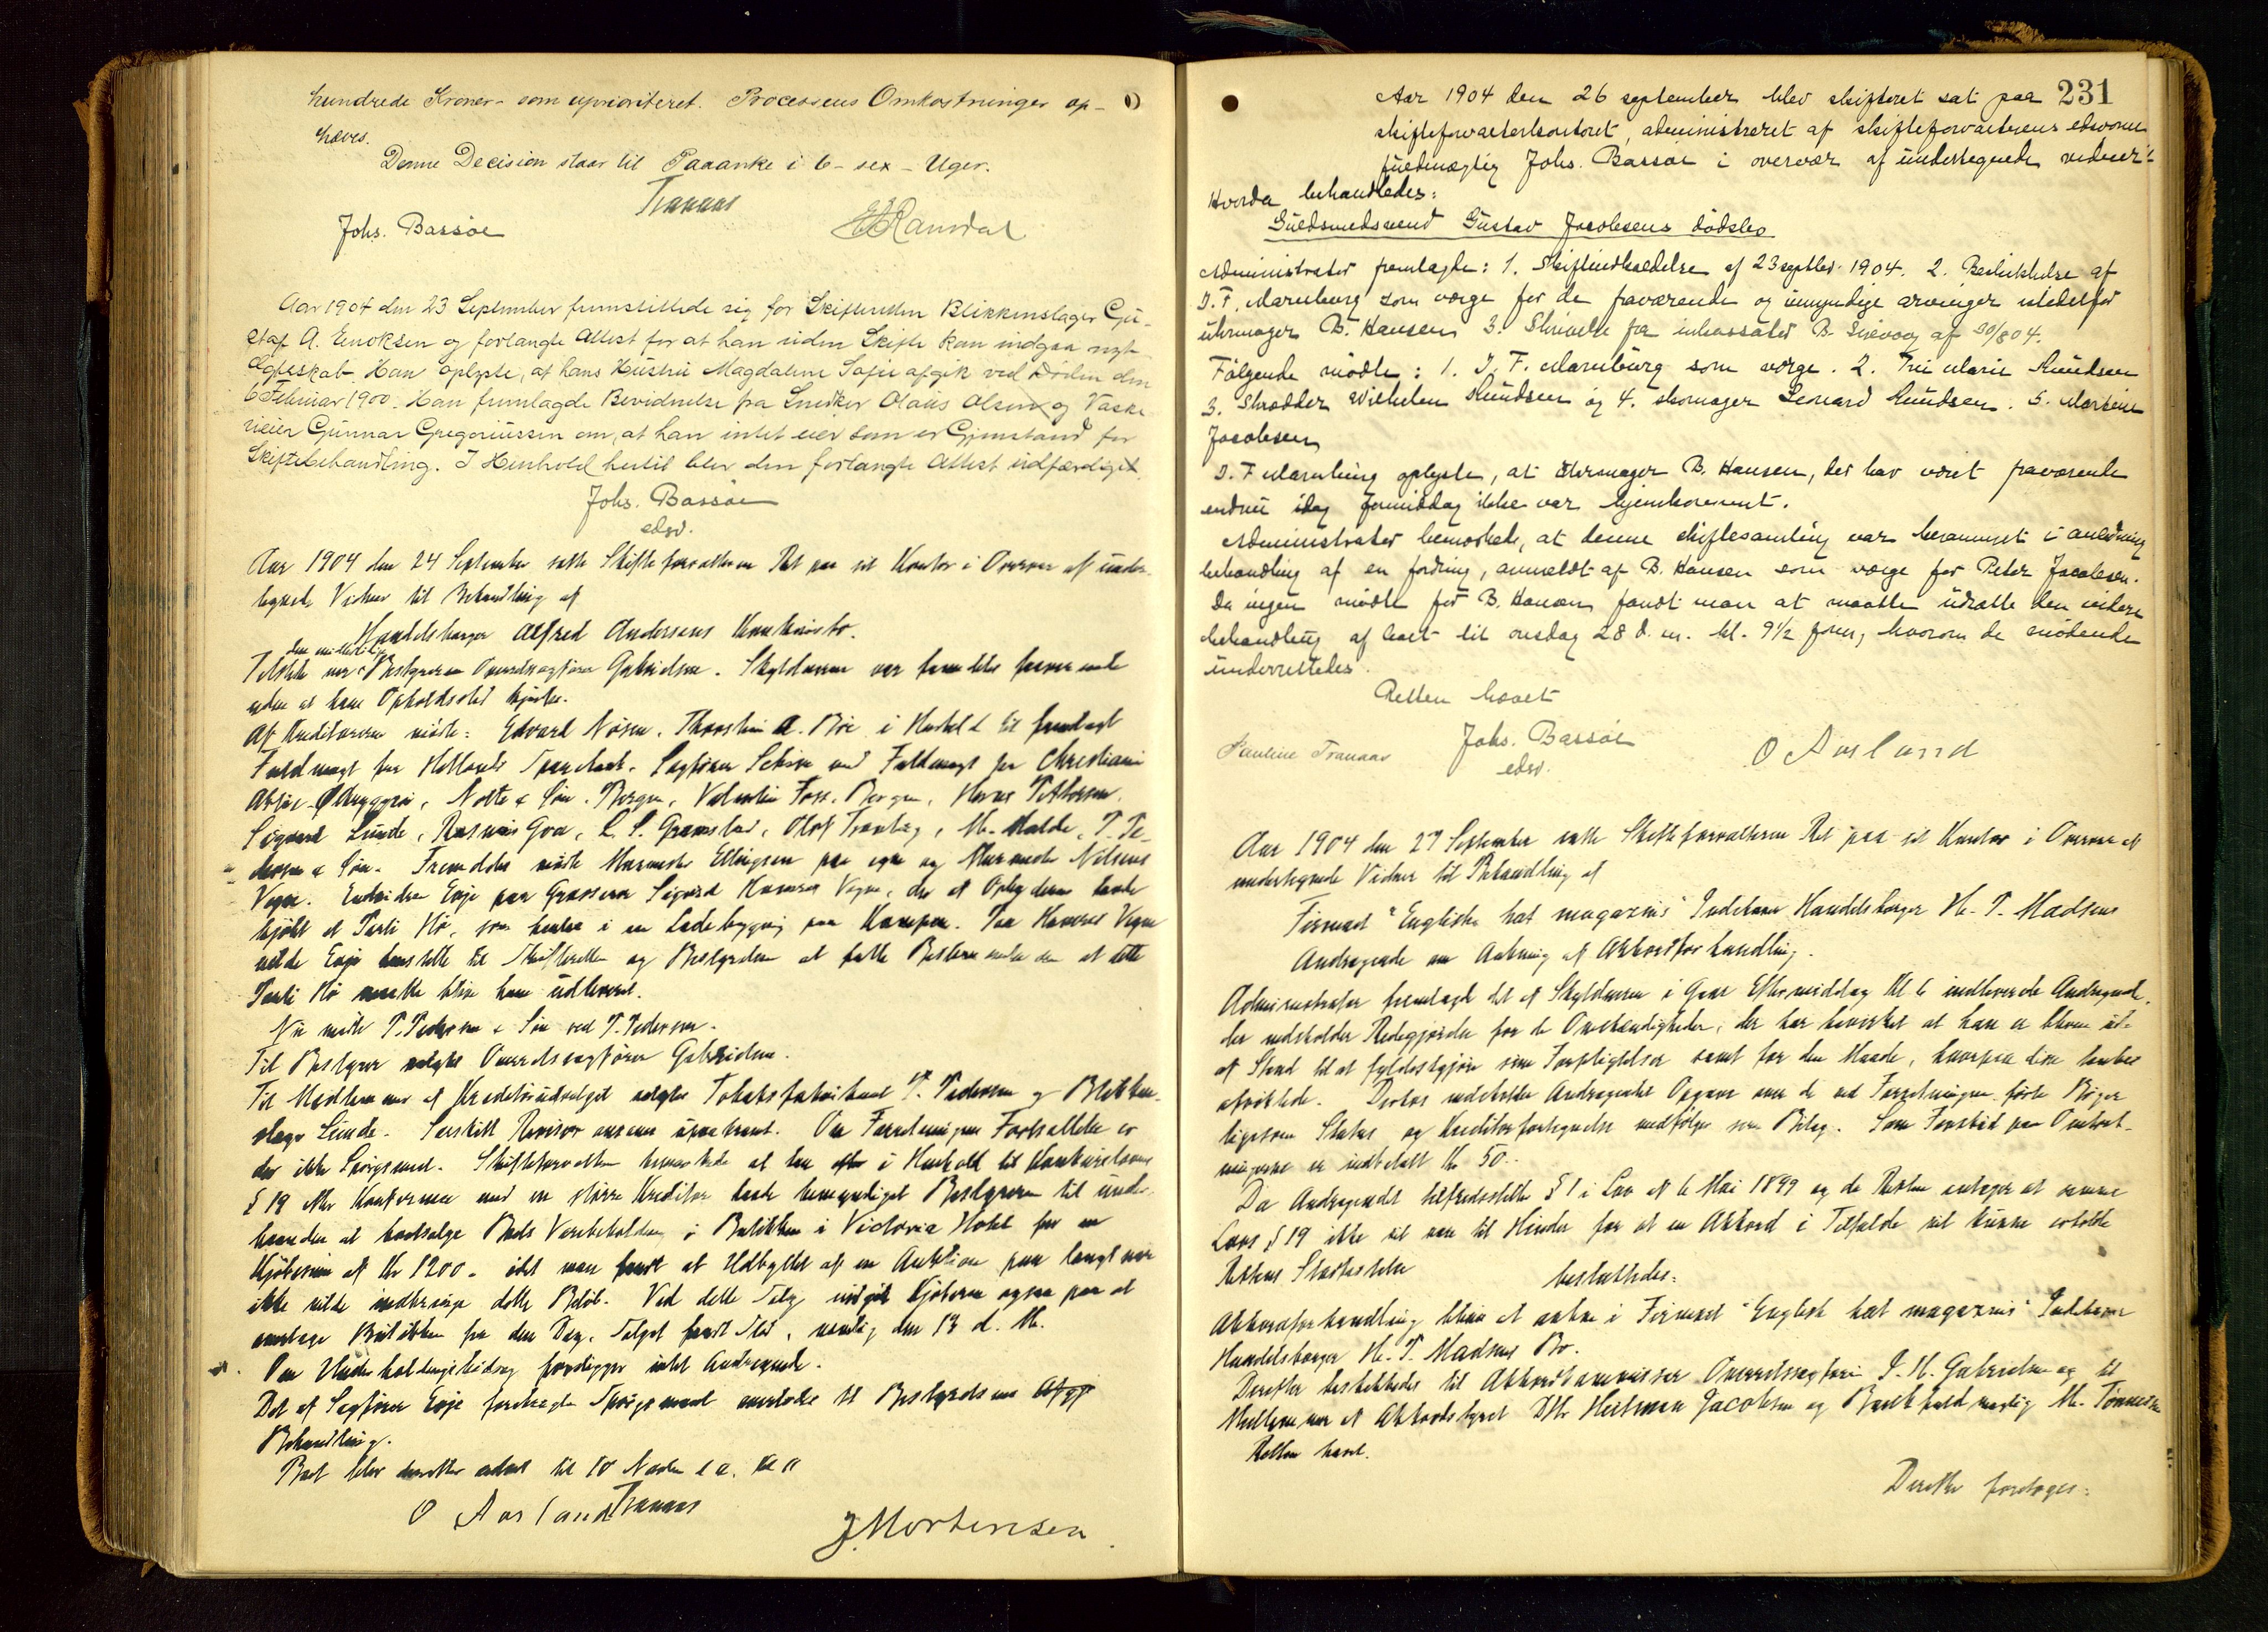 hundrede Kroner - som uprioriteret. Processens Omkostninger op-
hæves.
Denne Decision staar til Paaanke i 6 - sex - Uger.
Tranaas
Johs. Bassøe
Ramdal
Aar 1904 den 23 September fremstillede sig for Skifteretten Blikkenslager Gu-
staf A. Enoksen og forlangte Attest for at han uden Skifte kan indgaa nyt
Ægteskab. Han oplyste, at hans Hustru Magdalene Sofie afgik ved Døden den
6 Februar 1900. Han fremlagde Bevidnelse fra Snedker Olaus Olsen og Vaske
rieier Gunnar Gregoriussen om, at han intet eier som er Gjenstand for
Skiftebehandling. I Henhold hertil blev den forlangte Attest udfærdiget.
Johs. Bassøe
edsv.
Aar 1904 den 24 September satte Skifteforvalteren Ret paa sit Kontor i Overvær af under-
tegnede Vidner til Behandling af
Handelsborger Alfred Andersens Konkursbo.
den midlertidige
Tilstede var Bestyreren Overretssagfører Gabrielsen. Skyldneren var fremdeles fraværende
uden at hans Opholdssted kjendes.
Af Kreditorerne mødte: Edvard Nøsen, Thorstein A. Bøe i Henhold til fremlagt
Fuldmagt for Hetlands Sparebank. Sagfører Schiøn med Fuldmagt for Christiani
Aktie-Ølbryggeri, Nolte & Søn. Bergen, Valentin Foss. Bergen, Pettersen.
Sigvard Lunde, Rasmus Goa, L. S. Gramstad, Olof Tranberg, M. Halde, P. Pe-
dersen & Søn. Fremdeles mødte Ellingsen paa egne og Nilsens
Vegne. Endvidere Evje paa Grosserer Sigurd Vegne, der efter Oplysende havde
kjøbt et Parti Hø, som henlaa i en Ladebygning paa Kampen. Paa Vegne
vilde Evje henstille til Skifteretten og Bestyrelsen at fatte Bestemmelse om at dette
Parti Hø maatte blive ham udleveret.
Nu mødte P. Pedersen & Søn ved P. Pedersen.
Til Bestyrer valgtes Overretssagfører Gabrielsen.
Til Medlemmer af Kreditorudvalget valgtes Tobaksfabrikant P. Pedersen og Blikken-
slager Lunde. Særskilt Revisor ansaaes upaakrævet. Om Forretningens Fortsættelse er
der ikke Spørgsmaal. Skifteforvalteren bemærkede at han i Henhold til Konkurslovens
§ 19 efter Konference med en større Kreditor havde bemyndiget Bestyreren til under-
haanden at bortsælge Boets Varebeholdning i Butikken i Victoria Hotel for en
Kjøbesum af Kr 1200. idet man fandt at Udbyttet af en Auktion paa langt nær
ikke vilde indbringe dette Beløb. Ved dette Salg indgik Kjøberen ogsaa paa at
overtage Butikken fra den Dag, Salget fandt Sted, nemlig den 13 d. M.
Om Underholdningsbidrag foreligger intet Andragende.
Det af Sagfører Evje foretragte Spørgsmaal overlodes til Bestyrelsens Afgj
Behandling.
Boet blev derefter udsat til 10 Novbr d.a. Kl 11
O Aasland Tranaas
J. Mortensen
231
Aar 1904 den 26 september blev skifteret sat paa
skifteforvalterkontoret, administreret af skifteforvalterens edsvorne
fuldmægtig Johs. Bassøe i overvær af undertegnede vidner
Hvorda behandledes:
Guldsmedsvend Gustav Jacobsens dødsbo
Administrator fremlagde: 1. Skifteindkaldelse af 23 septbr. 1904. 2. Beskikkelse af
I. F. Marenburg som værge for de fraværende og umyndige arvinger istedetfor
uhrmager B. Hansen 3. Skrivelse fra inkassator B. af 30/8 04.
Følgende mødte: 1. I. F. Marenburg som værge. 2. Fru Marie Knudsen
3. Skrædder Wilhelm Knudsen og 4. skomager Leonard Knudsen. 5. Martin
Jacobsen
I. F Marenburg oplyste, at uhrmager B. Hansen, der har været fraværende
endnu idag formiddag ikke var hjemkommet.
Administrator bemærkede, at denne skiftesamling var berammet i anledning
behandling af en fordring, anmeldt af B. Hansen som værge for Peter Jacobsen.
Da ingen mødte for B. Hansen fandt man at maatte udsætte den videre
behandling af boet til onsdag 28 d. m. kl. 9½ form, hvorom de mødende
underrettedes.
Retten hævet
Pauline Tranaas Johs. Bassøe
edsv.
O Aasland
Aar 1904 den 27 September satte Skifteforvalteren Ret paa sit Kontor i Overvær af
undertegnede Vidner til Behandling af
Firmaet "Engliske hat magazins" Indehaver Handelsborger H. P. Madsens
Andragende om Aabning af Akkordforhandling.
Administrator fremlagde det af Skyldneren i Gaar Eftermiddag Kl 6 indleverede Andragende,
der indeholder Redegjørelse for de Omstændigheder, der har bevirket at han er bleven ude
af Stand til at fyldestgjøre sine Forpligtelser samt for den Maade, hvorpaa disse tænkes
afviklede. Derhos indeholder Andragendet Opgave over de ved Forretningen førte Bøger
ligesom Status og Kreditorfortegnelse medfølger som Bilag. Som Forskud paa Omkost-
ningerne er indbetalt Kr 50.-
Da Andragendet tilfredsstiller § 1 i Lov af 6 Mai 1899 og da Retten antager at samme
Lovs § 19 ikke vil være til Hinder for at en Akkord i Tilfælde vil kunne erholde
Rettens Stadfæstelse
besluttedes:
Akkordforhandling bliver at aabne i Firmaet "English hat magazins" Indehaver
Handelsborger H. P. Madsens Bo.
Derefter beskikkedes til Akkordkommissær Overretssagfører J. M. Gabrielsen og til
Medlemmer af Akkordstyret DHr Heitman Jacobsen og Bankfuldmægtig M. Tønnessen
Retten hævet.
Derefter foretoges: